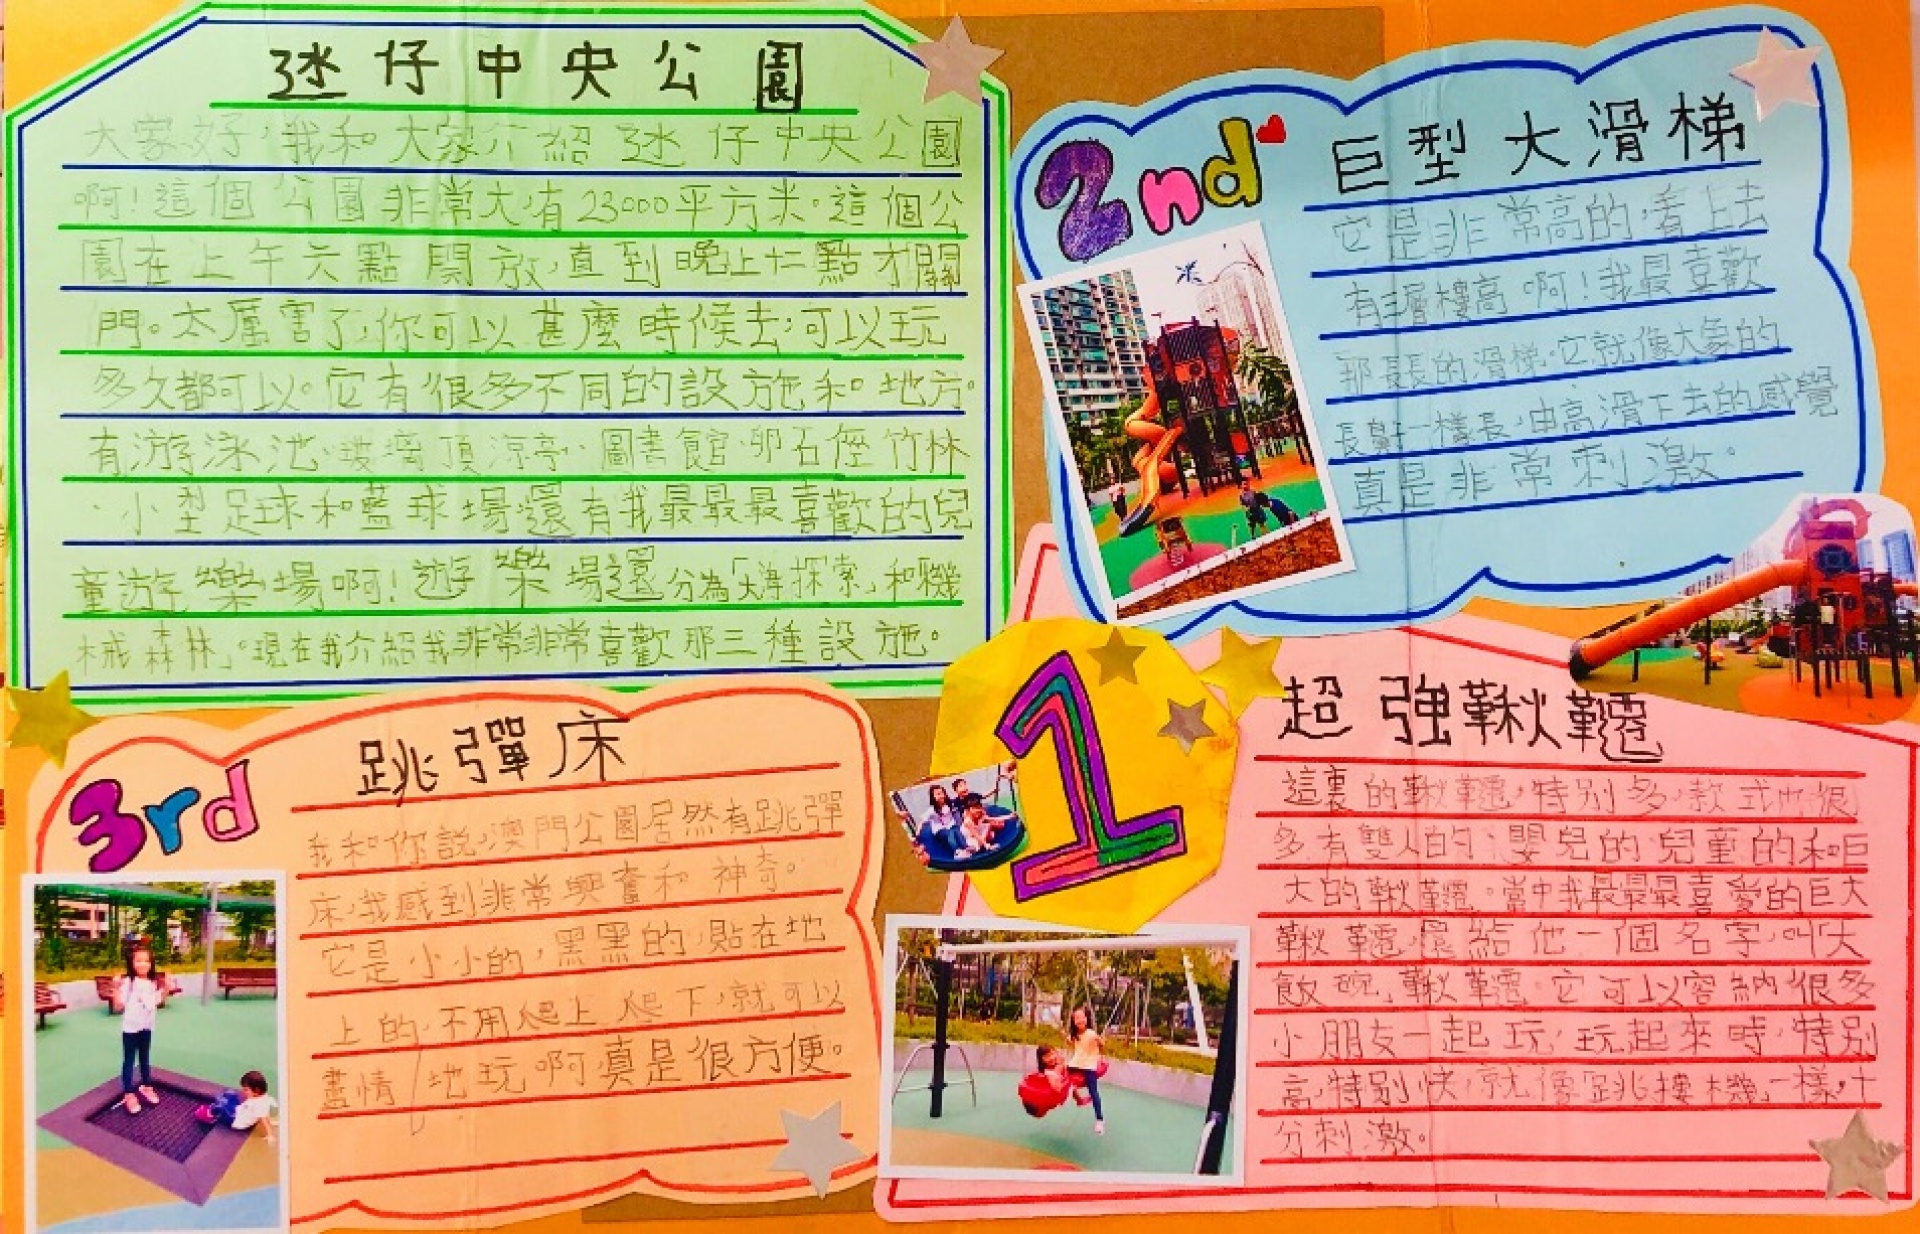 氹仔中央公園
大家好，我和大家介紹氹仔中央公園
啊！這個公園非常大，有23000平方米。這個公
園在上午六點開放，直到晚上十二點才關
門。太厲害了，你可以甚麼時候去，可以玩
多久都可以。它有很多不同的設施和地方。
有游泳池、玻璃頂涼亭、圖書館、卵石徑竹林
、小型足球和藍球場，還有我最最最喜歡的兒
童遊樂場啊！遊樂場還分為「大海探索」和「機
械森林」。現在我介紹我非常非常喜歡那三種設施。
2nd
巨型大滑梯
它是非常高的，看上去
有三層樓高啊！我最喜歡
那長長的滑梯。它就像大象的
長鼻一樣長，由高滑下去的感覺
真是非常刺激。
3rd
跳彈床
我和你說，澳門公園居然有跳彈
床，我感到非常興奮和神奇。
它是小小的，黑黑的，貼在地
上的，不用爬上爬下，就可以
盡情地玩啊，真是很方便。
1
超強鞦韆
這裏的鞦韆，特別多，款式也很
多，有雙人的、嬰兒的、兒童的和巨
大的鞦韆。當中我最最最喜愛的巨大
鞦韆，還給他一個名字，叫「大
飯碗」鞦韆。它可以容納很多
小朋友一起玩，玩起來時，特別
高，特別快，就像「跳摟機」一樣，十
分刺激。